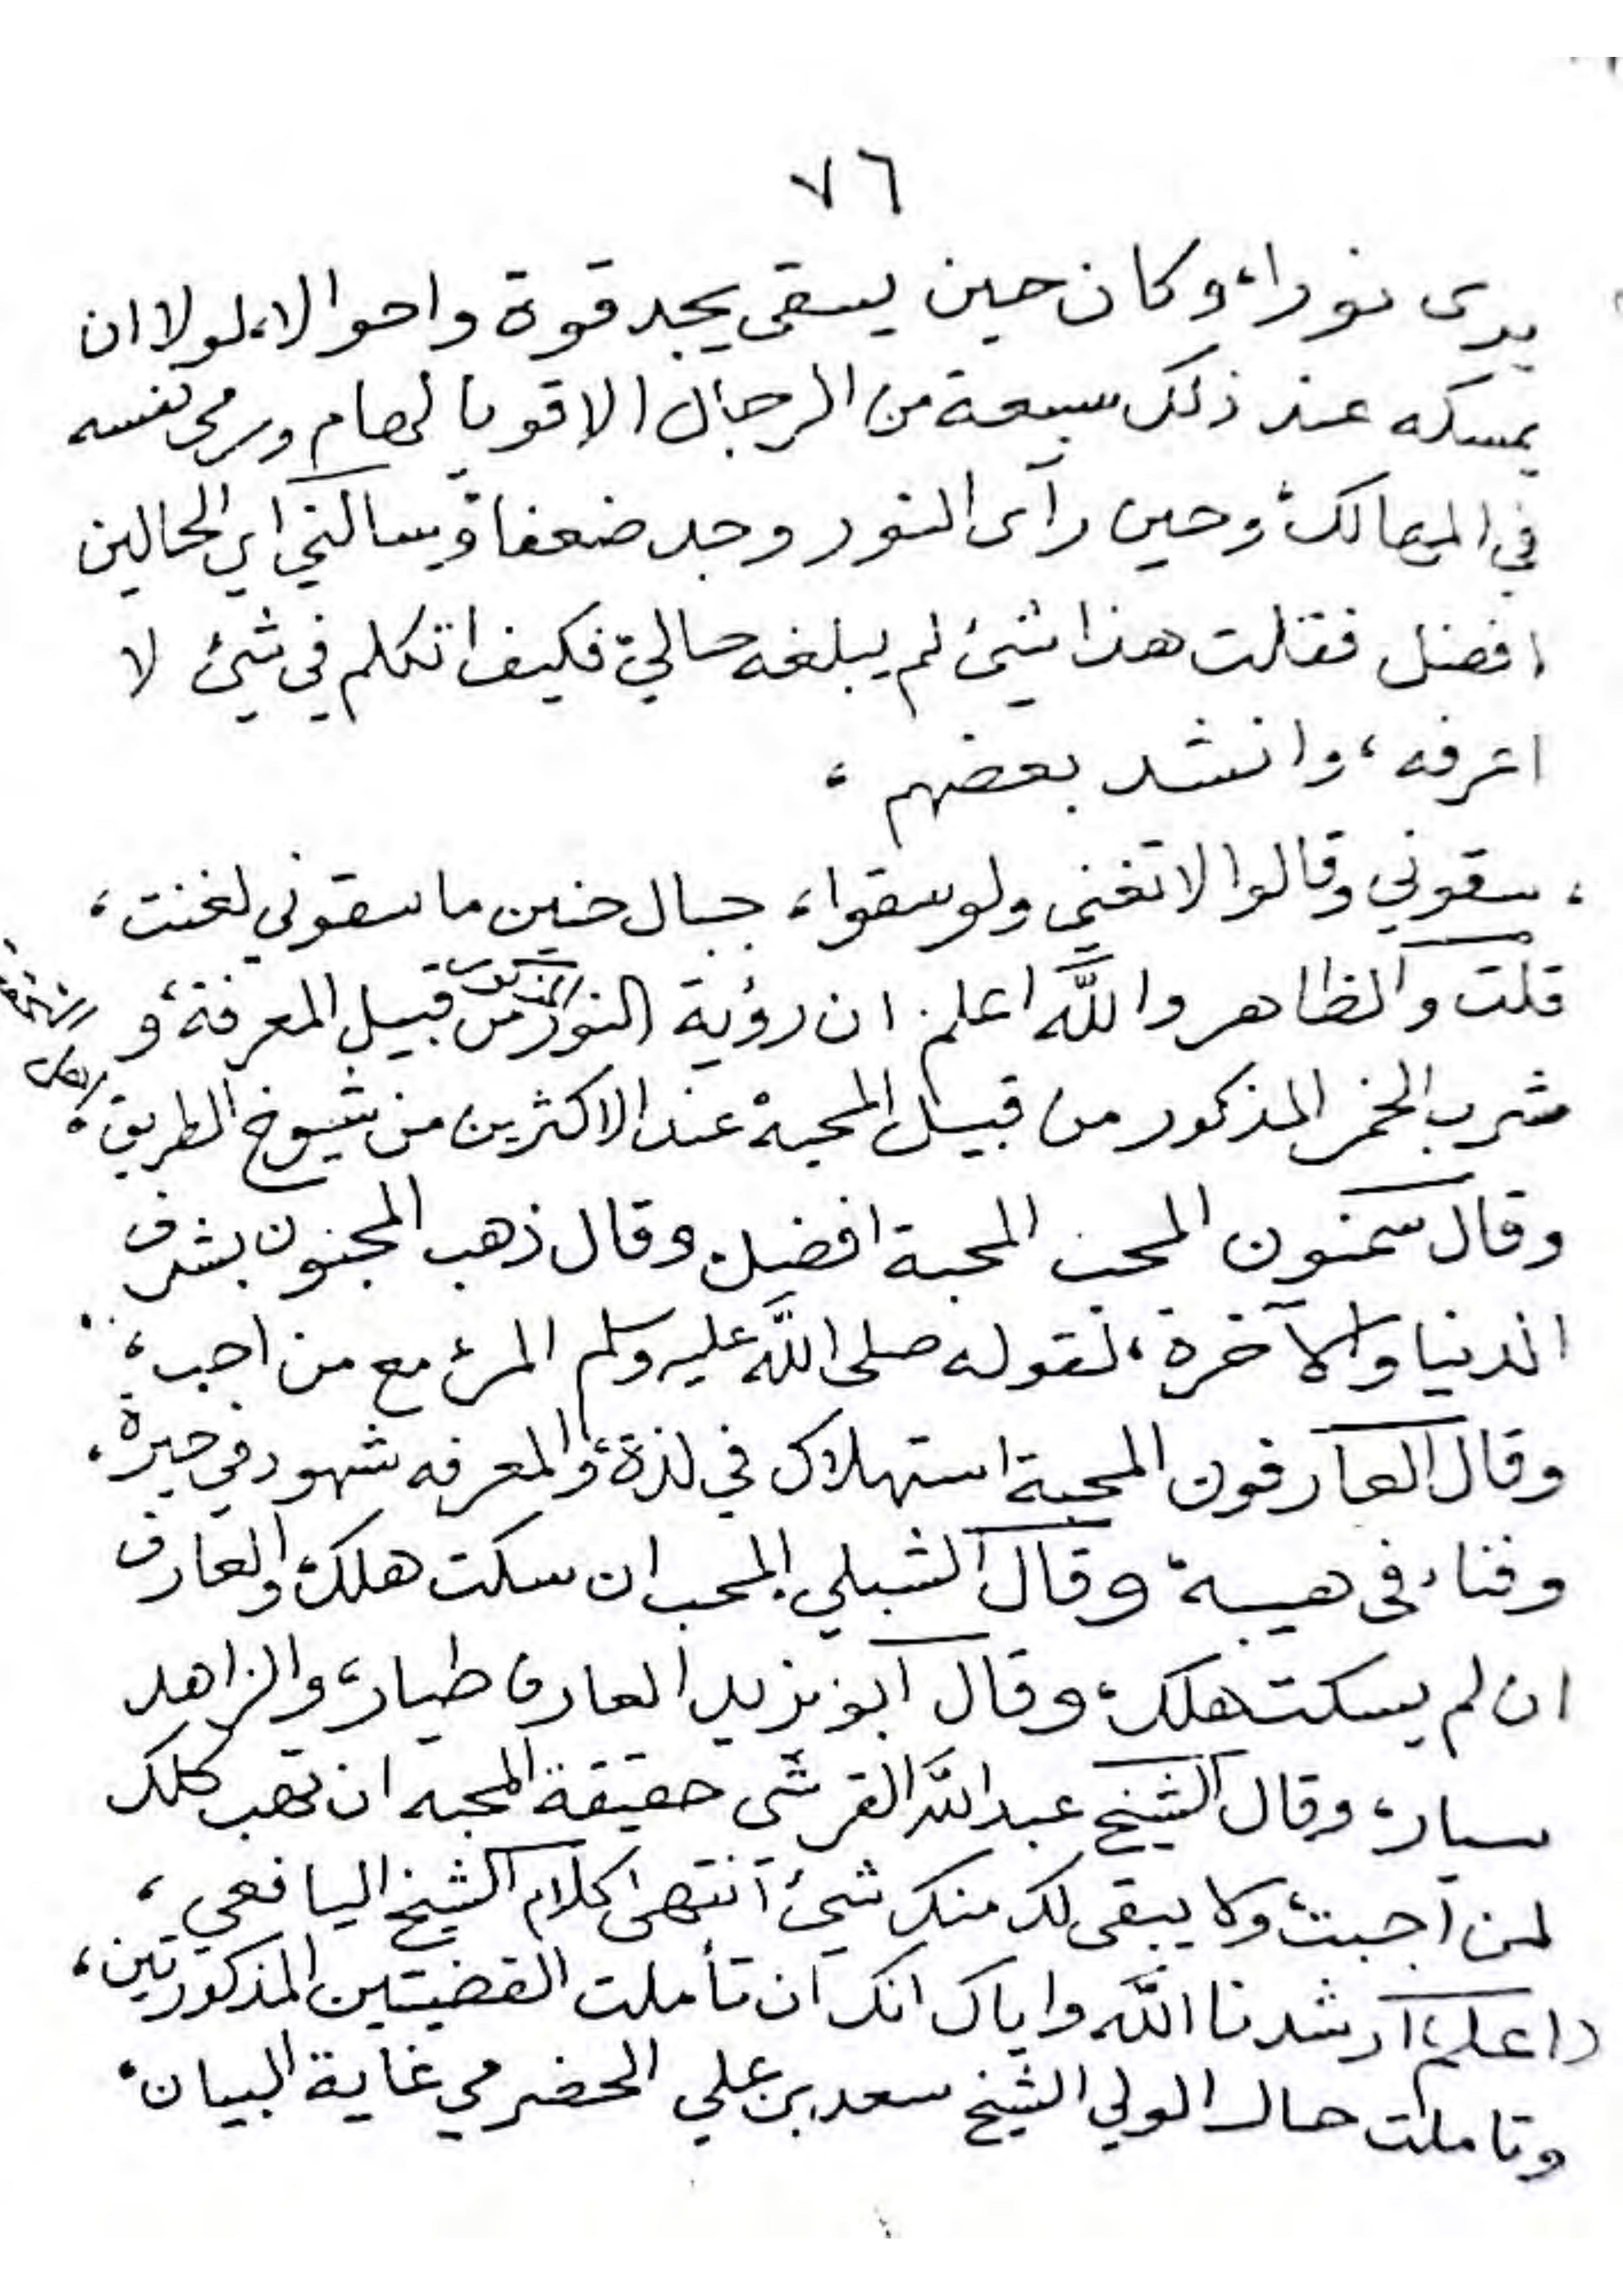 ٧٦
يرى نورا، وكان حين يسقى يجد قوة واحوالا، لولا ان
يمسكه عند ذلك سبعة من الرجال الاقويا لهام ورمى نفسه
في المهالك، وحين رآى النور وجد ضعفا، وسالني اي الحالين
افضل فقلت هذا شئ لم يبلغه حالي، فكيف اتكلم في شئ لا
اعرفه، وانشد بعضهم،
، سقوني وقالوا لا تغني ولو سقوا، جبال حنين ما سقوني لغنت،
قلت والظاهر والله اعلم ان رؤية النور المذكور من قبيل المعرفة، و
شرب الخمر المذكور من قبيل المحبة، عند الاكثرين من شيوخ الطريق،
وقال سمنون المحب المحبة افضل، وقال ذهب المحبون بشرف
الدنيا والآخرة، لقوله صلى الله عليه وسلم المرئ مع من احب،
وقال العارفون المحبة استهلاك في لذة، والمعرفه شهود في حيرة،
وفناء في هيبة، وقال الشبلي المحب ان سكت هلك، والعارف
ان لم يسكت هلك، وقال ابو يزيد العارف طيار، والزاهد
سيار، وقال الشيخ عبد الله القرشي حقيقة المحبه ان تهب كلك
لمن احببت، ولا يبقى لك منك شئ انتهى كلام الشيخ اليافعي،
واعلم، ارشدنا الله واياك انك ان تأملت القضيتين المذكورتين،
وتاملت حال الولي الشيخ سعد بن علي الحضرمي غاية البيان،